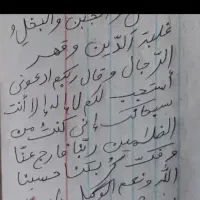 والجبن والبخل و
غلبة الدين وقهر
الرجال وقال ربكم ادعوني
أستجب لكم لا إله إلا أنت
سبحانك إني كنت من
الظلمين ربنا فارج عنا
كربتنا حسبنا
الله ونعم الوكيل